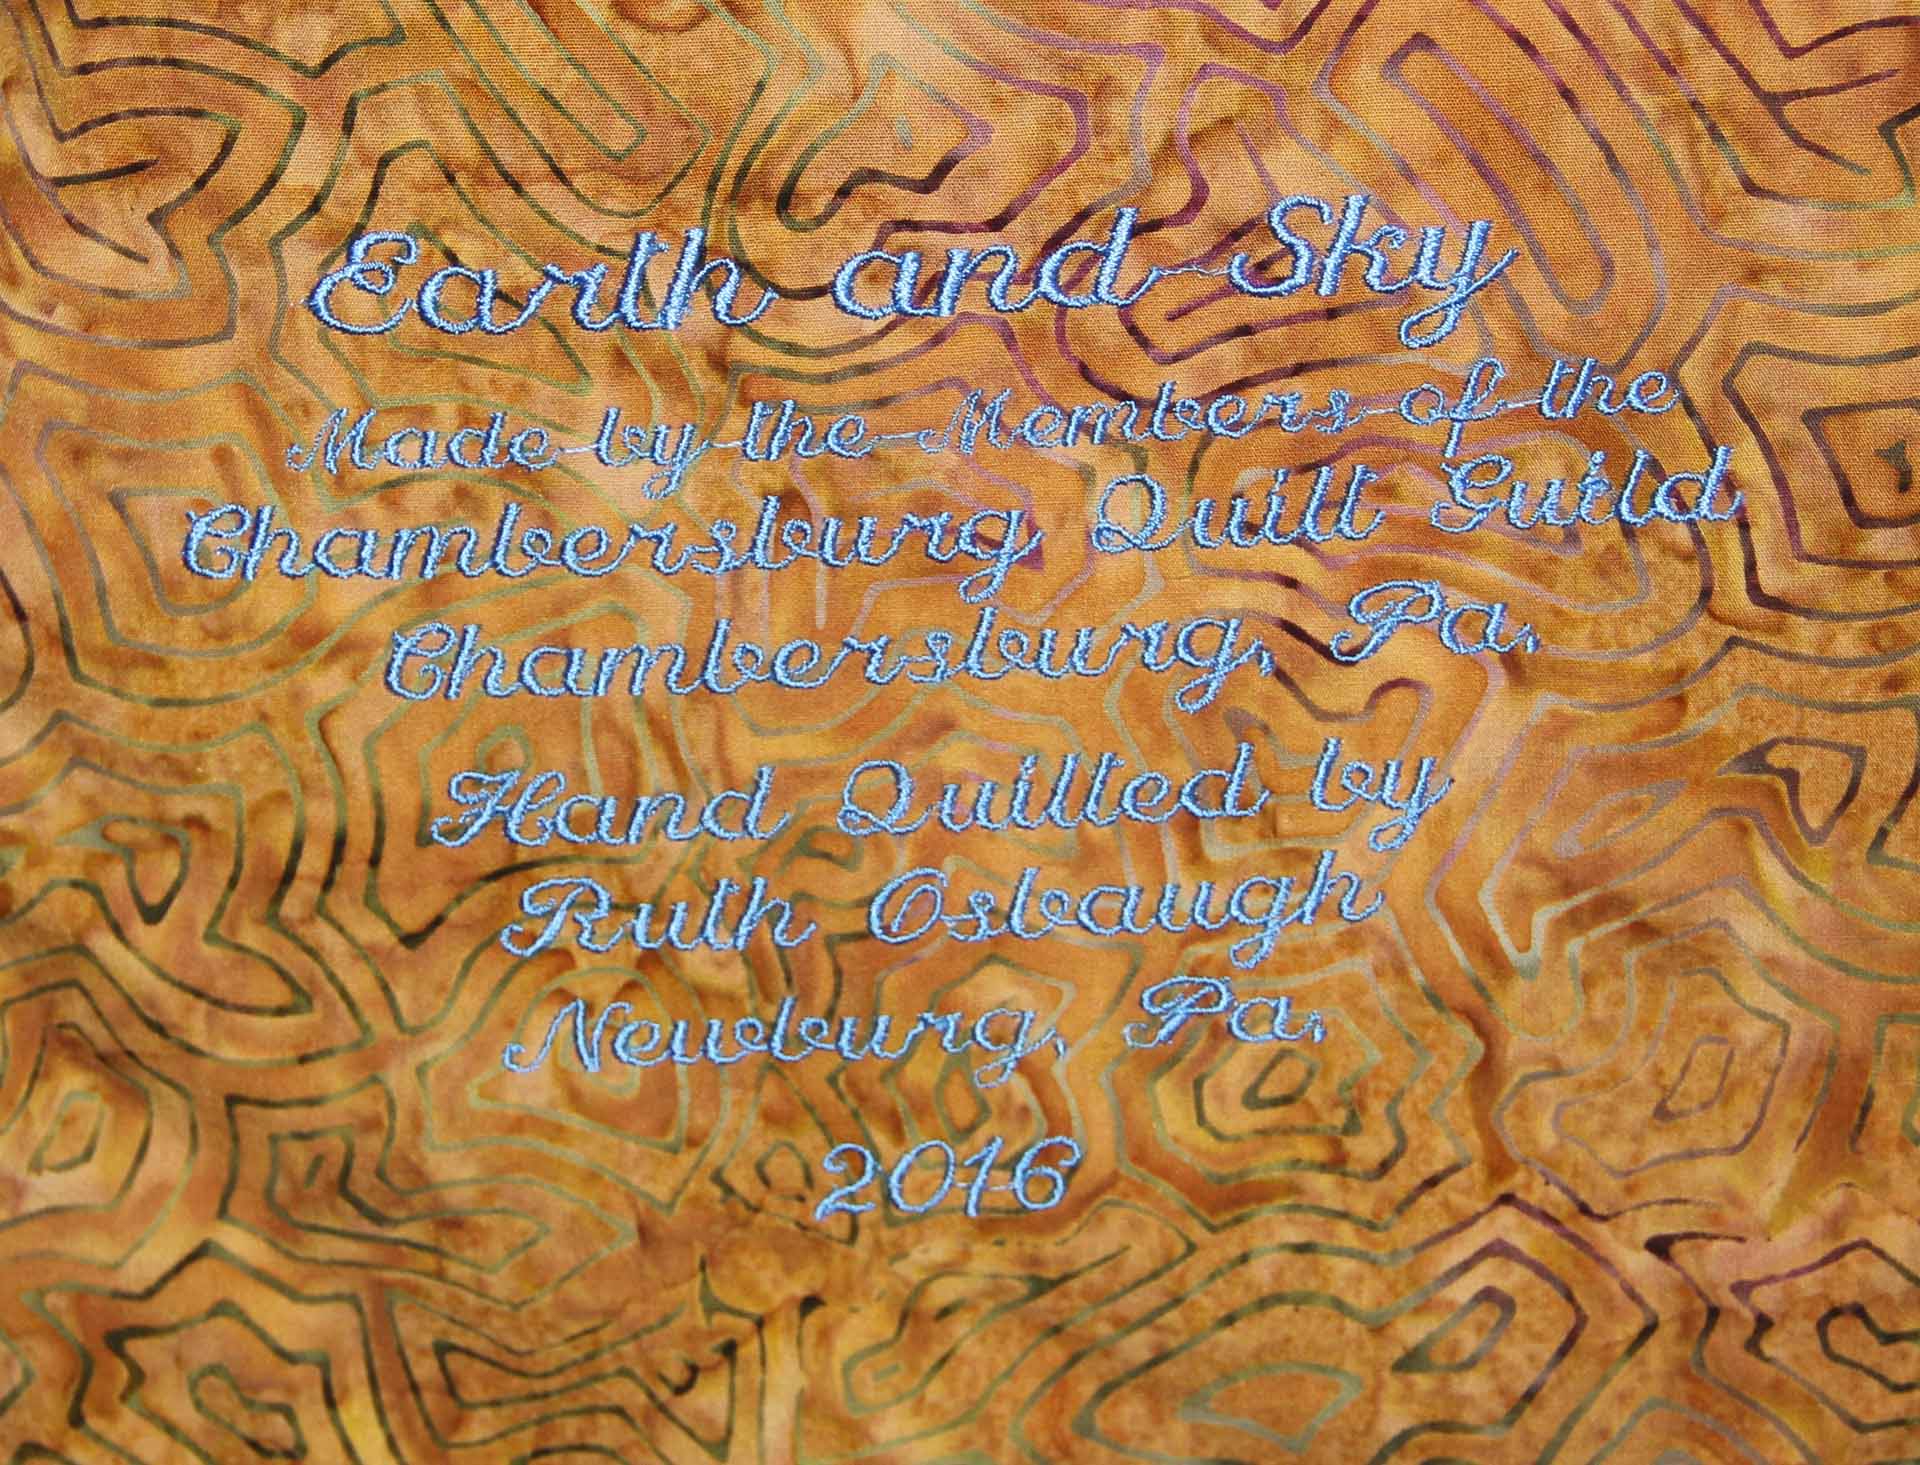 Earth and Sky
Made by the Members of the
Chambersburg Quilt Guild
Chambersburg, Pa.
Hand Quilted by
Ruth Osbaugh
Newburg, Pa.
2016